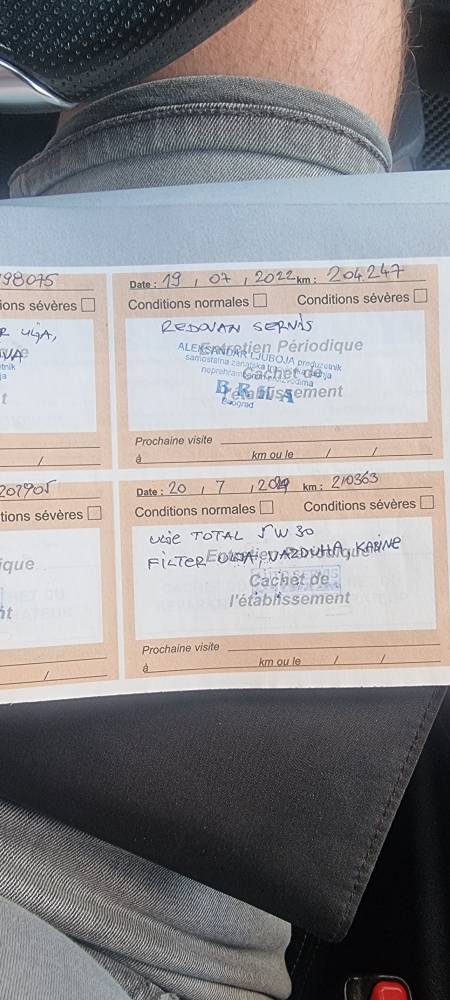 198075
ions sévères
R ULJA,
t
Date : 19 , 07 , 2022 km : 204.247
Conditions normales Conditions sévères
REDOVAN SERVIS
Entretien Périodique
ALEKSANDAR LJUBOJA preduzetnik
samostalna zanatska
Cachet de
l'établissement
Beograd
Prochaine visite
à km ou le / /
/
207905
tions sévères
ique
nt
/
Date : 20 , 7 , km : 210363
Conditions normales Conditions sévères
ULJE TOTAL 5W30
FILTER ULJA, VAZDUHA, KABINE
Entretien Périodique
Cachet de
l'établissement
Prochaine visite
à km ou le / /